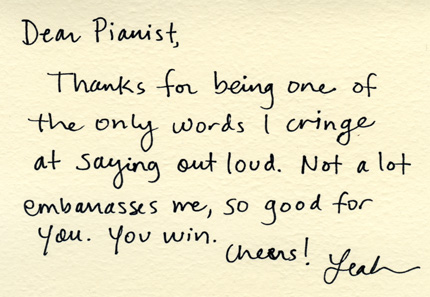 Dear Pianist,
Thanks for being one of
the only words I cringe
at saying out loud. Not a lot
embarrasses me, so good for
you. You win.
Cheers! Leah